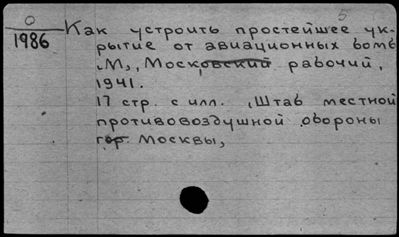 О
5
1986
Как устроить простейшее ук-
рытие от авиационных бомб
М., Московский рабочий,
1941.
17 стр. с илл. (Штаб местной
противовоздушной обороны
гор. Москвы)